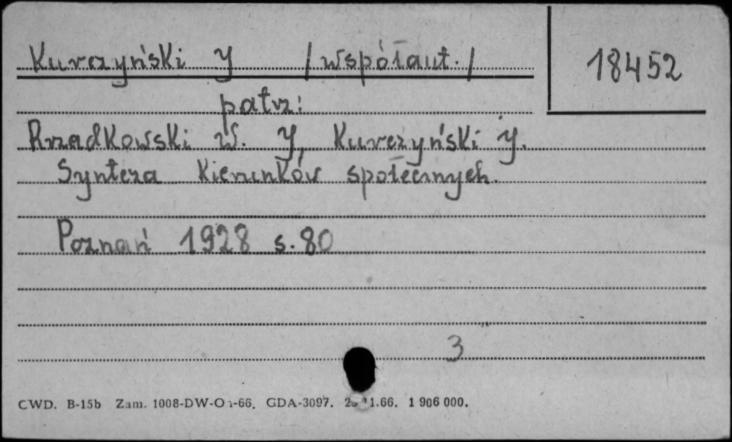 Kurczyński J /współaut./
18452
patrz:
Rzadkowski W. J, Kurczyński J.
Synteza kierunków społecznych.
Poznań 1928 s. 80
3
CWD. B-15b Zam. 1008-DW-O -66. GDA-3097. 1.66. 1 906 000.